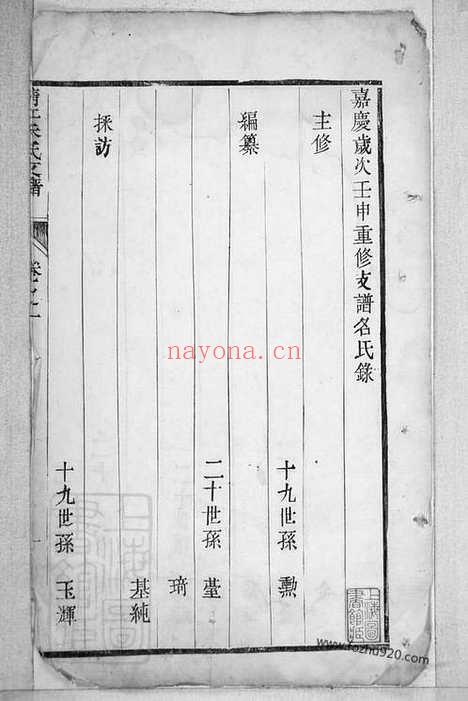 嘉慶歲次壬申重修支譜名氏錄
主修
十九世孫 勲
編纂
二十世孫 堇
琦
基純
採訪
十九世孫 玉輝
氏支譜
卷之一
上海圖書館藏
nayona.cn
www.fozhu920.com